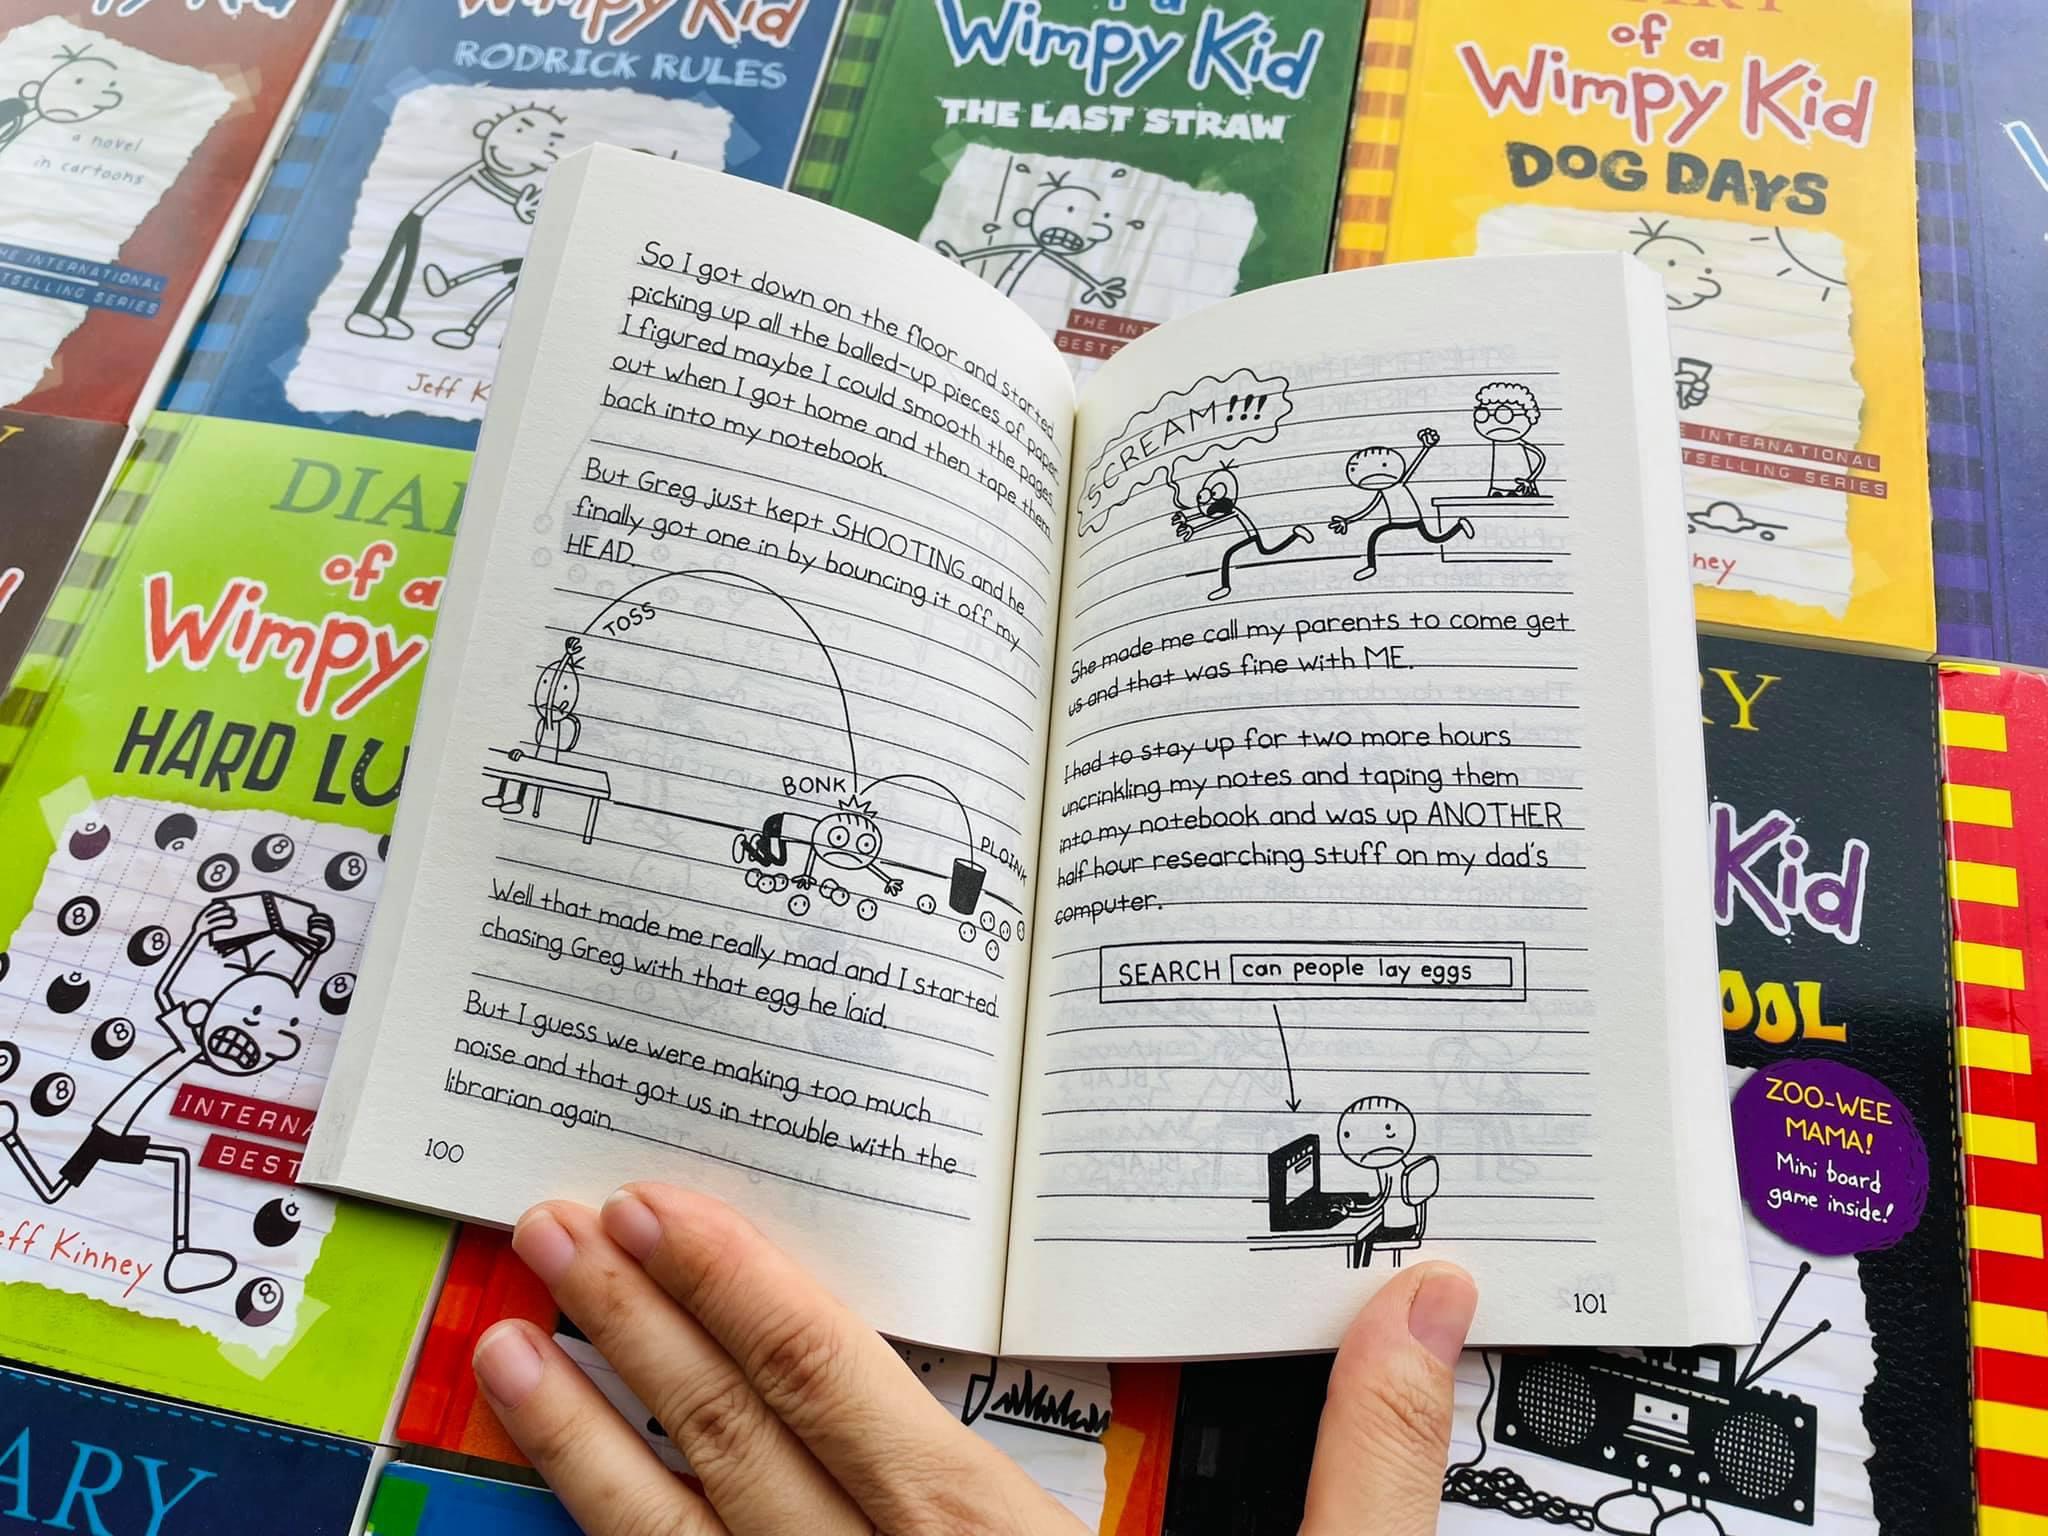 Wimpy Kid
RODRICK RULES
Wimpy Kid
THE LAST STRAW
of a
Wimpy Kid
DOG DAYS
a novel
in cartoons
THE INTERNATIONAL
SERIES
Jeff K
THE INT
BESTS
INTERNATIONAL
SERIES
ney
So I got down on the floor and started
picking up all the balled-up pieces of paper.
I figured maybe I could smooth the pages
out when I got home and then tape them
back into my notebook.
But Greg just kept SHOOTING and he
finally got one in by bouncing it off my
HEAD.
TOSS
BONK
PLOINK
Well that made me really mad and I started
chasing Greg with that egg he laid.
But I guess we were making too much
noise and that got us in trouble with the
librarian again.
100
SCREAM!!!
She made me call my parents to come get
us and that was fine with ME.
I had to stay up for two more hours
uncrinkling my notes and taping them
into my notebook and was up ANOTHER
half hour researching stuff on my dad's
computer.
SEARCH can people lay eggs
101
DIA
of a
Wimpy
HARD LU
8
8
8
8
8
8
8
8
8
INTERNA
BEST
eff Kinney
ARY
RY
Kid
OOL
ZOO-WEE
MAMA!
Mini board
game inside!